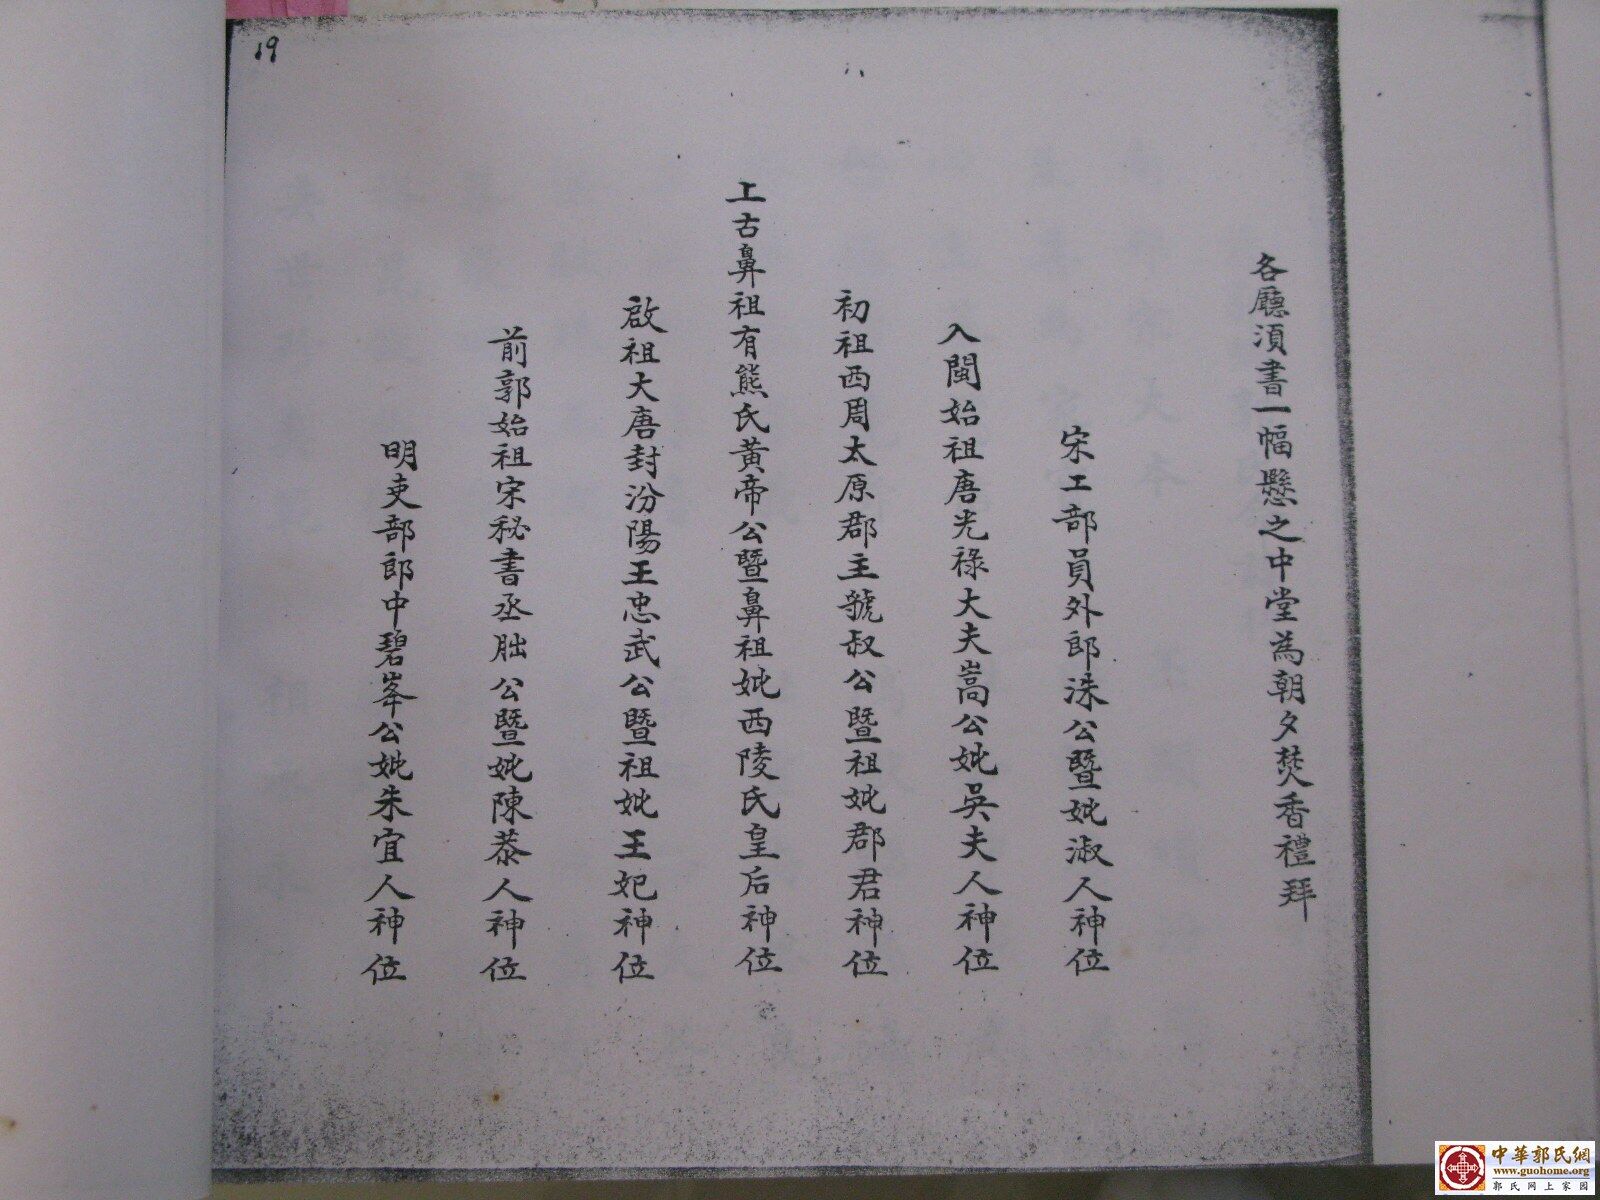 19
各廳須書一幅懸之中堂為朝夕焚香禮拜
宋工部員外郎洙公暨妣淑人神位
入閩始祖唐光祿大夫嵩公妣吳夫人神位
初祖西周太原郡主虢叔公暨祖妣郡君神位
上古鼻祖有熊氏黃帝公暨鼻祖妣西陵氏皇后神位
啟祖大唐封汾陽王忠武公暨祖妣王妃神位
前郭始祖宋秘書丞朏公暨妣陳恭人神位
明吏部郎中碧峯公妣朱宜人神位
中華郭氏網
www.guohome.org
郭氏网上家园